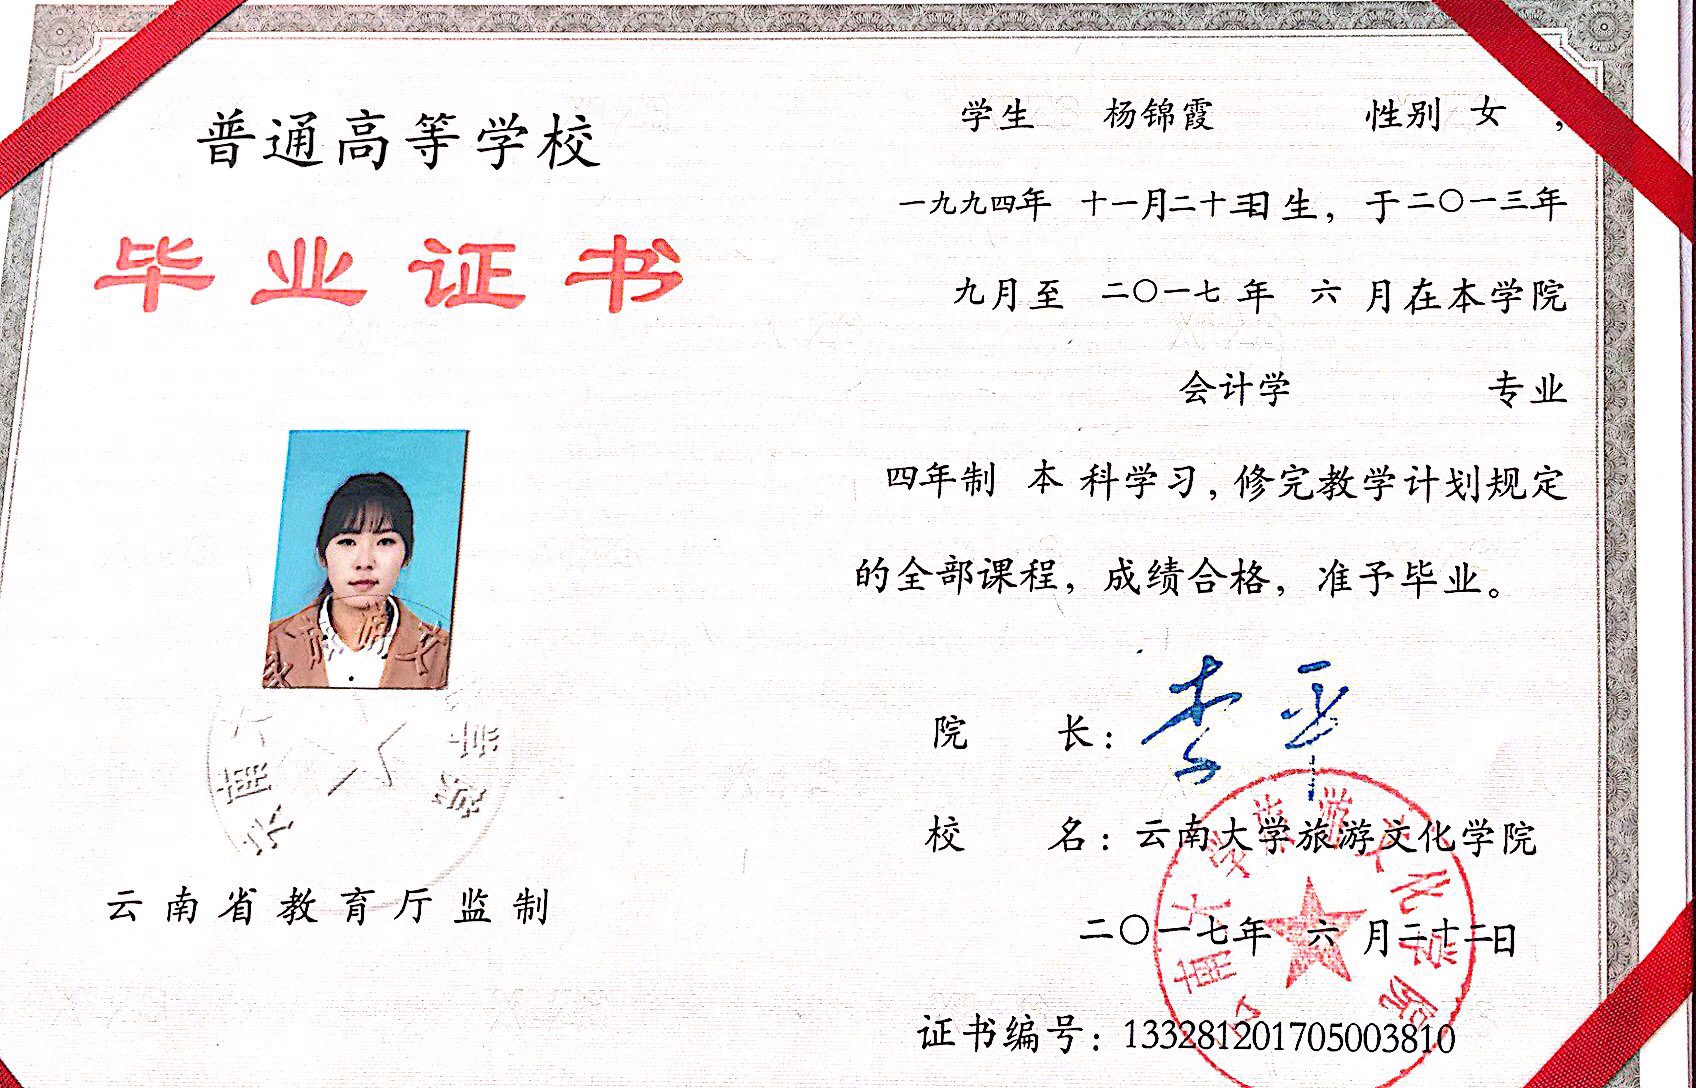 普通高等学校
毕业证书
云南省教育厅监制
学生 杨锦霞 性别 女 ,
一九九四年 十一月二十三日生，于二〇一三年
九月至 二〇一七 年 六 月在本学院
会计学 专业
四年制 本 科学习，修完教学计划规定
的全部课程，成绩合格，准予毕业。
院 长：李平
校 名：云南大学旅游文化学院
二〇一七年 六 月二十二日
证书编号：133281201705003810
云南大学旅游文化学院
云南大学旅游文化学院